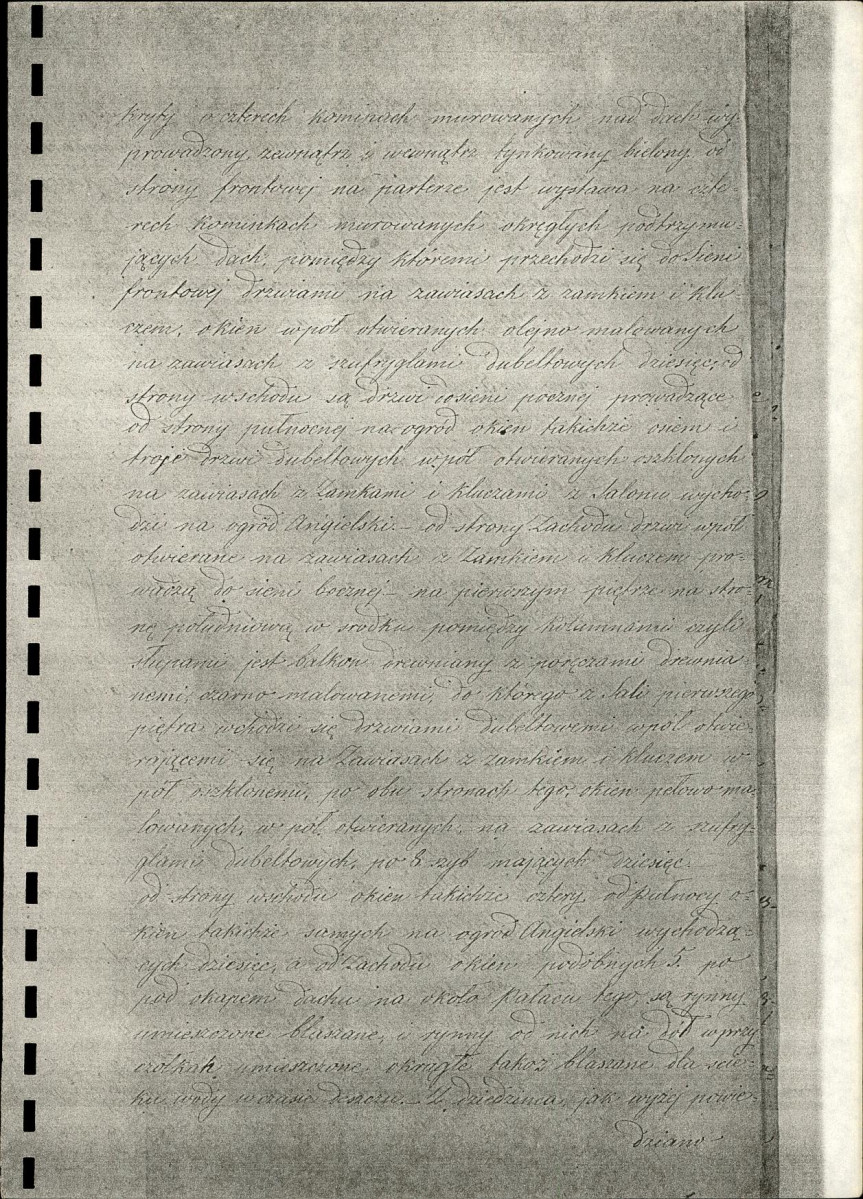 kryty o czterech kominach murowanych nad dach wy-
prowadzony, zewnątrz i wewnątrz tynkowany bielony, od
strony frontowej na parterze jest wystawa na czte-
rech kominkach murowanych okrągłych podtrzymu-
jących dach, pomiędzy któremi przechodzi się do Sieni
frontowej drzwiami na zawiasach z zamkiem i klu-
czem, okien wpół otwieranych olejno malowanych
na zawiasach z szufryglami dubeltowych dziesięć, od
strony wschodu są drzwi do sieni bocznej prowadzące
od strony pułnocnej na ogród okien takichże osiem i
troje drzwi dubeltowych wpół otwieranych oszklonych
na zawiasach z Zamkami i kluczami z Salonu wycho-
dzi na ogród Angielski. – od strony Zachodu drzwi wpół
otwierane na zawiasach z Zamkiem i kluczem pro-
wadzą do sieni bocznej – na pierwszym piętrze na stro-
nę południową w środku pomiędzy kolumnami czyli
słupami jest balkon drewniany z poręczami drewnia-
nemi, czarno malowanemi, do którego z Sali pierwszego
piętra wchodzi się drzwiami dubeltowemi wpół otwie-
rającemi się na Zawiasach z zamkiem i kluczem w
pół oszklonemi, po obu stronach tego, okien ma-
lowanych, w pół otwieranych, na zawiasach z szufry-
glami dubeltowych, po 8 szyb mających dziesięć
od strony wschodu okien takichże cztery, od pułnocy o-
kien takichże samych na ogród Angielski wychodzą-
cych dziesięć, a od Zachodu okien podobnych 5. po
pod okapem dachu na około Pałacu tego, są rynny
umieszczone blaszane, i rynny od nich na dół w przy
czółkach umieszczone, okrągłe takoż blaszane dla ście-
ku wody w czasie deszczu. – Z dziedzińca, jak wyżej powie-
dziano